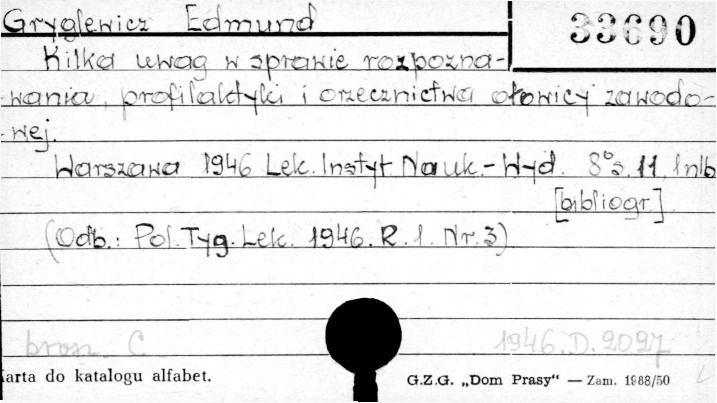 Gryglewicz Edmund
33690
Kilka uwag w sprawie rozpozna-
wania, profilaktyki i orzecznictwa ołowicy zawodo-
wej.
Warszawa 1946 Lek. Instyt Nauk.-Wyd. 8° s. 11, 1nlb
[bibliogr.]
(Odb.: Pol. Tyg. Lek. 1946. R. 1. Nr. 3)
brosz. C 1946.D.2027
Karta do katalogu alfabet.
G.Z.G. „Dom Prasy" — Zam. 1988/50